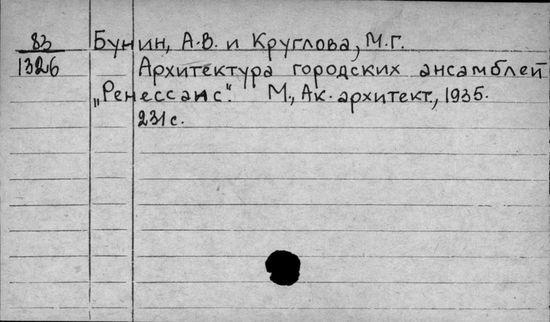 83 Бунин, А.В. и Круглова, М.Г.
1326 Архитектура городских ансамблей
„Ренессанс". М., Ак. архитект., 1935.
231 с.